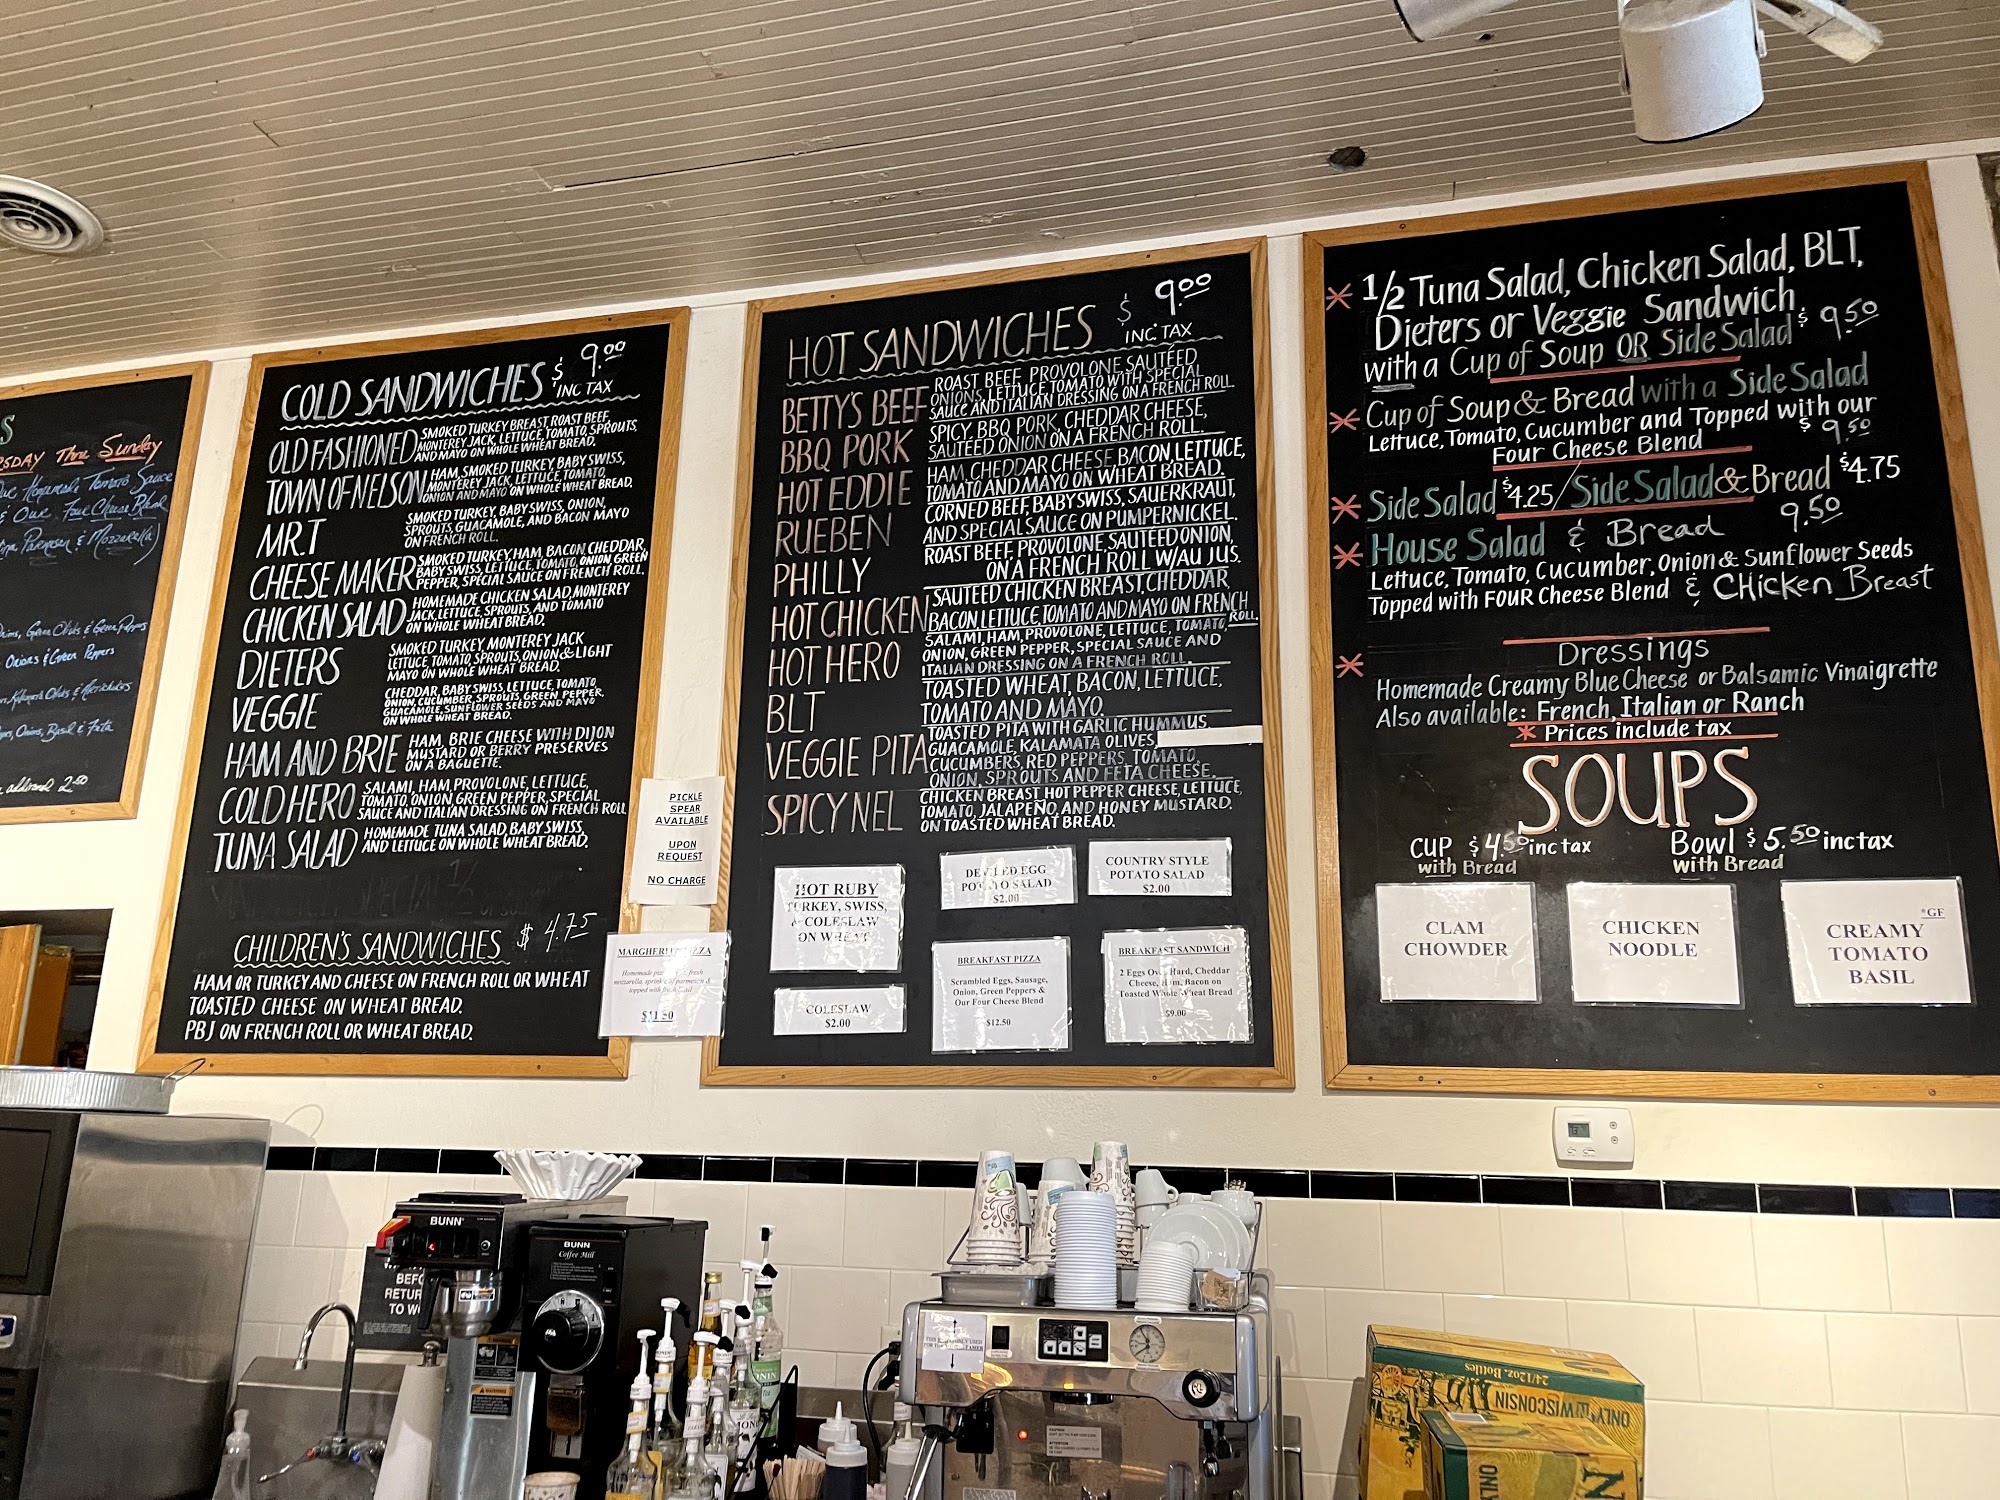 S
RSDAY Thru Sunday
Our Homemade Tomato Sauce
& Our Four Cheese Blend
Parmesan & Mozzarella)
Onions & Green Peppers
Onions, Basil & Feta
additional 2.50
COLD SANDWICHES $ 9.00
INC TAX
OLD FASHIONED SMOKED TURKEY BREAST, ROAST BEEF,
MONTEREY JACK, LETTUCE, TOMATO, SPROUTS,
AND MAYO ON WHOLE WHEAT BREAD.
TOWN OF NELSON HAM, SMOKED TURKEY, BABY SWISS,
MONTEREY JACK, LETTUCE, TOMATO,
ONION AND MAYO ON WHOLE WHEAT BREAD.
MR.T SMOKED TURKEY, BABY SWISS, ONION,
SPROUTS, GUACAMOLE, AND BACON MAYO
ON FRENCH ROLL.
CHEESE MAKER SMOKED TURKEY, HAM, BACON, CHEDDAR,
BABY SWISS, LETTUCE, TOMATO, ONION, GREEN
PEPPER, SPECIAL SAUCE ON FRENCH ROLL.
CHICKEN SALAD HOMEMADE CHICKEN SALAD, MONTEREY
JACK, LETTUCE, SPROUTS, AND TOMATO
ON WHOLE WHEAT BREAD.
DIETERS SMOKED TURKEY, MONTEREY JACK
LETTUCE, TOMATO, SPROUTS, ONION & LIGHT
MAYO ON WHOLE WHEAT BREAD.
VEGGIE CHEDDAR, BABY SWISS, LETTUCE, TOMATO,
ONION, CUCUMBER, SPROUTS, GREEN PEPPER,
GUACAMOLE, SUNFLOWER SEEDS AND MAYO
ON WHOLE WHEAT BREAD.
HAM AND BRIE HAM, BRIE CHEESE WITH DIJON
MUSTARD OR BERRY PRESERVES
ON A BAGUETTE.
COLD HERO SALAMI, HAM, PROVOLONE, LETTUCE,
TOMATO, ONION, GREEN PEPPER, SPECIAL
SAUCE AND ITALIAN DRESSING ON FRENCH ROLL
TUNA SALAD HOMEMADE TUNA SALAD, BABY SWISS,
AND LETTUCE ON WHOLE WHEAT BREAD.
CHILDREN'S SANDWICHES $ 4.75
HAM OR TURKEY AND CHEESE ON FRENCH ROLL OR WHEAT
TOASTED CHEESE ON WHEAT BREAD.
PBJ ON FRENCH ROLL OR WHEAT BREAD.
PICKLE
SPEAR
AVAILABLE
UPON
REQUEST
NO CHARGE
MARGHERITA PIZZA
Homemade pizza fresh
mozzarella, parmesan &
topped with fresh basil
$11.50
HOT SANDWICHES $ 9.00
INC. TAX
BETTY'S BEEF ROAST BEEF, PROVOLONE, SAUTÉED
ONIONS, LETTUCE, TOMATO WITH SPECIAL
SAUCE AND ITALIAN DRESSING ON A FRENCH ROLL.
BBQ PORK SPICY, BBQ PORK, CHEDDAR CHEESE,
SAUTÉED ONION ON A FRENCH ROLL.
HOT EDDIE HAM, CHEDDAR CHEESE, BACON, LETTUCE,
TOMATO AND MAYO ON WHEAT BREAD.
RUEBEN CORNED BEEF, BABY SWISS, SAUERKRAUT,
AND SPECIAL SAUCE ON PUMPERNICKEL.
PHILLY ROAST BEEF, PROVOLONE, SAUTEED ONION,
ON A FRENCH ROLL W/AU JUS.
HOT CHICKEN SAUTEED CHICKEN BREAST, CHEDDAR,
BACON, LETTUCE, TOMATO AND MAYO ON FRENCH ROLL.
HOT HERO SALAMI, HAM, PROVOLONE, LETTUCE, TOMATO,
ONION, GREEN PEPPER, SPECIAL SAUCE AND
ITALIAN DRESSING ON A FRENCH ROLL.
BLT TOASTED WHEAT, BACON, LETTUCE,
TOMATO AND MAYO.
VEGGIE PITA TOASTED PITA WITH GARLIC HUMMUS
GUACAMOLE, KALAMATA OLIVES
CUCUMBERS, RED PEPPERS, TOMATO,
ONION, SPROUTS AND FETA CHEESE.
SPICY NEL CHICKEN BREAST, HOT PEPPER CHEESE, LETTUCE,
TOMATO, JALAPEÑO, AND HONEY MUSTARD.
ON TOASTED WHEAT BREAD.
HOT RUBY
TURKEY, SWISS,
& COLESLAW
ON WHEAT
DEVILED EGG
POTATO SALAD
$2.00
COUNTRY STYLE
POTATO SALAD
$2.00
COLESLAW
$2.00
BREAKFAST PIZZA
Scrambled Eggs, Sausage,
Onion, Green Peppers &
Our Four Cheese Blend
$12.50
BREAKFAST SANDWICH
2 Eggs Over Hard, Cheddar
Cheese, Ham, Bacon on
Toasted Whole Wheat Bread
$9.00
* 1/2 Tuna Salad, Chicken Salad, BLT,
Dieters or Veggie Sandwich
with a Cup of Soup OR Side Salad $ 9.50
* Cup of Soup & Bread with a Side Salad
Lettuce, Tomato, Cucumber and Topped with our
Four Cheese Blend $ 9.50
* Side Salad $4.25 / Side Salad & Bread $4.75
* House Salad & Bread 9.50
Lettuce, Tomato, Cucumber, Onion & Sunflower Seeds
Topped with FOUR Cheese Blend & CHicken Breast
Dressings
* Homemade Creamy Blue Cheese or Balsamic Vinaigrette
Also available: French, Italian or Ranch
* Prices include tax
SOUPS
CUP $4.50 inc tax
with Bread
Bowl $5.50 inc tax
with Bread
CLAM
CHOWDER
CHICKEN
NOODLE
*GF
CREAMY
TOMATO
BASIL
BUNN
BUNN
Coffee Mill
BEFO
RETUR
TO WO
WARNING
24/12oz. Bottles
ONLY IN WISCONSIN
ONLY
N